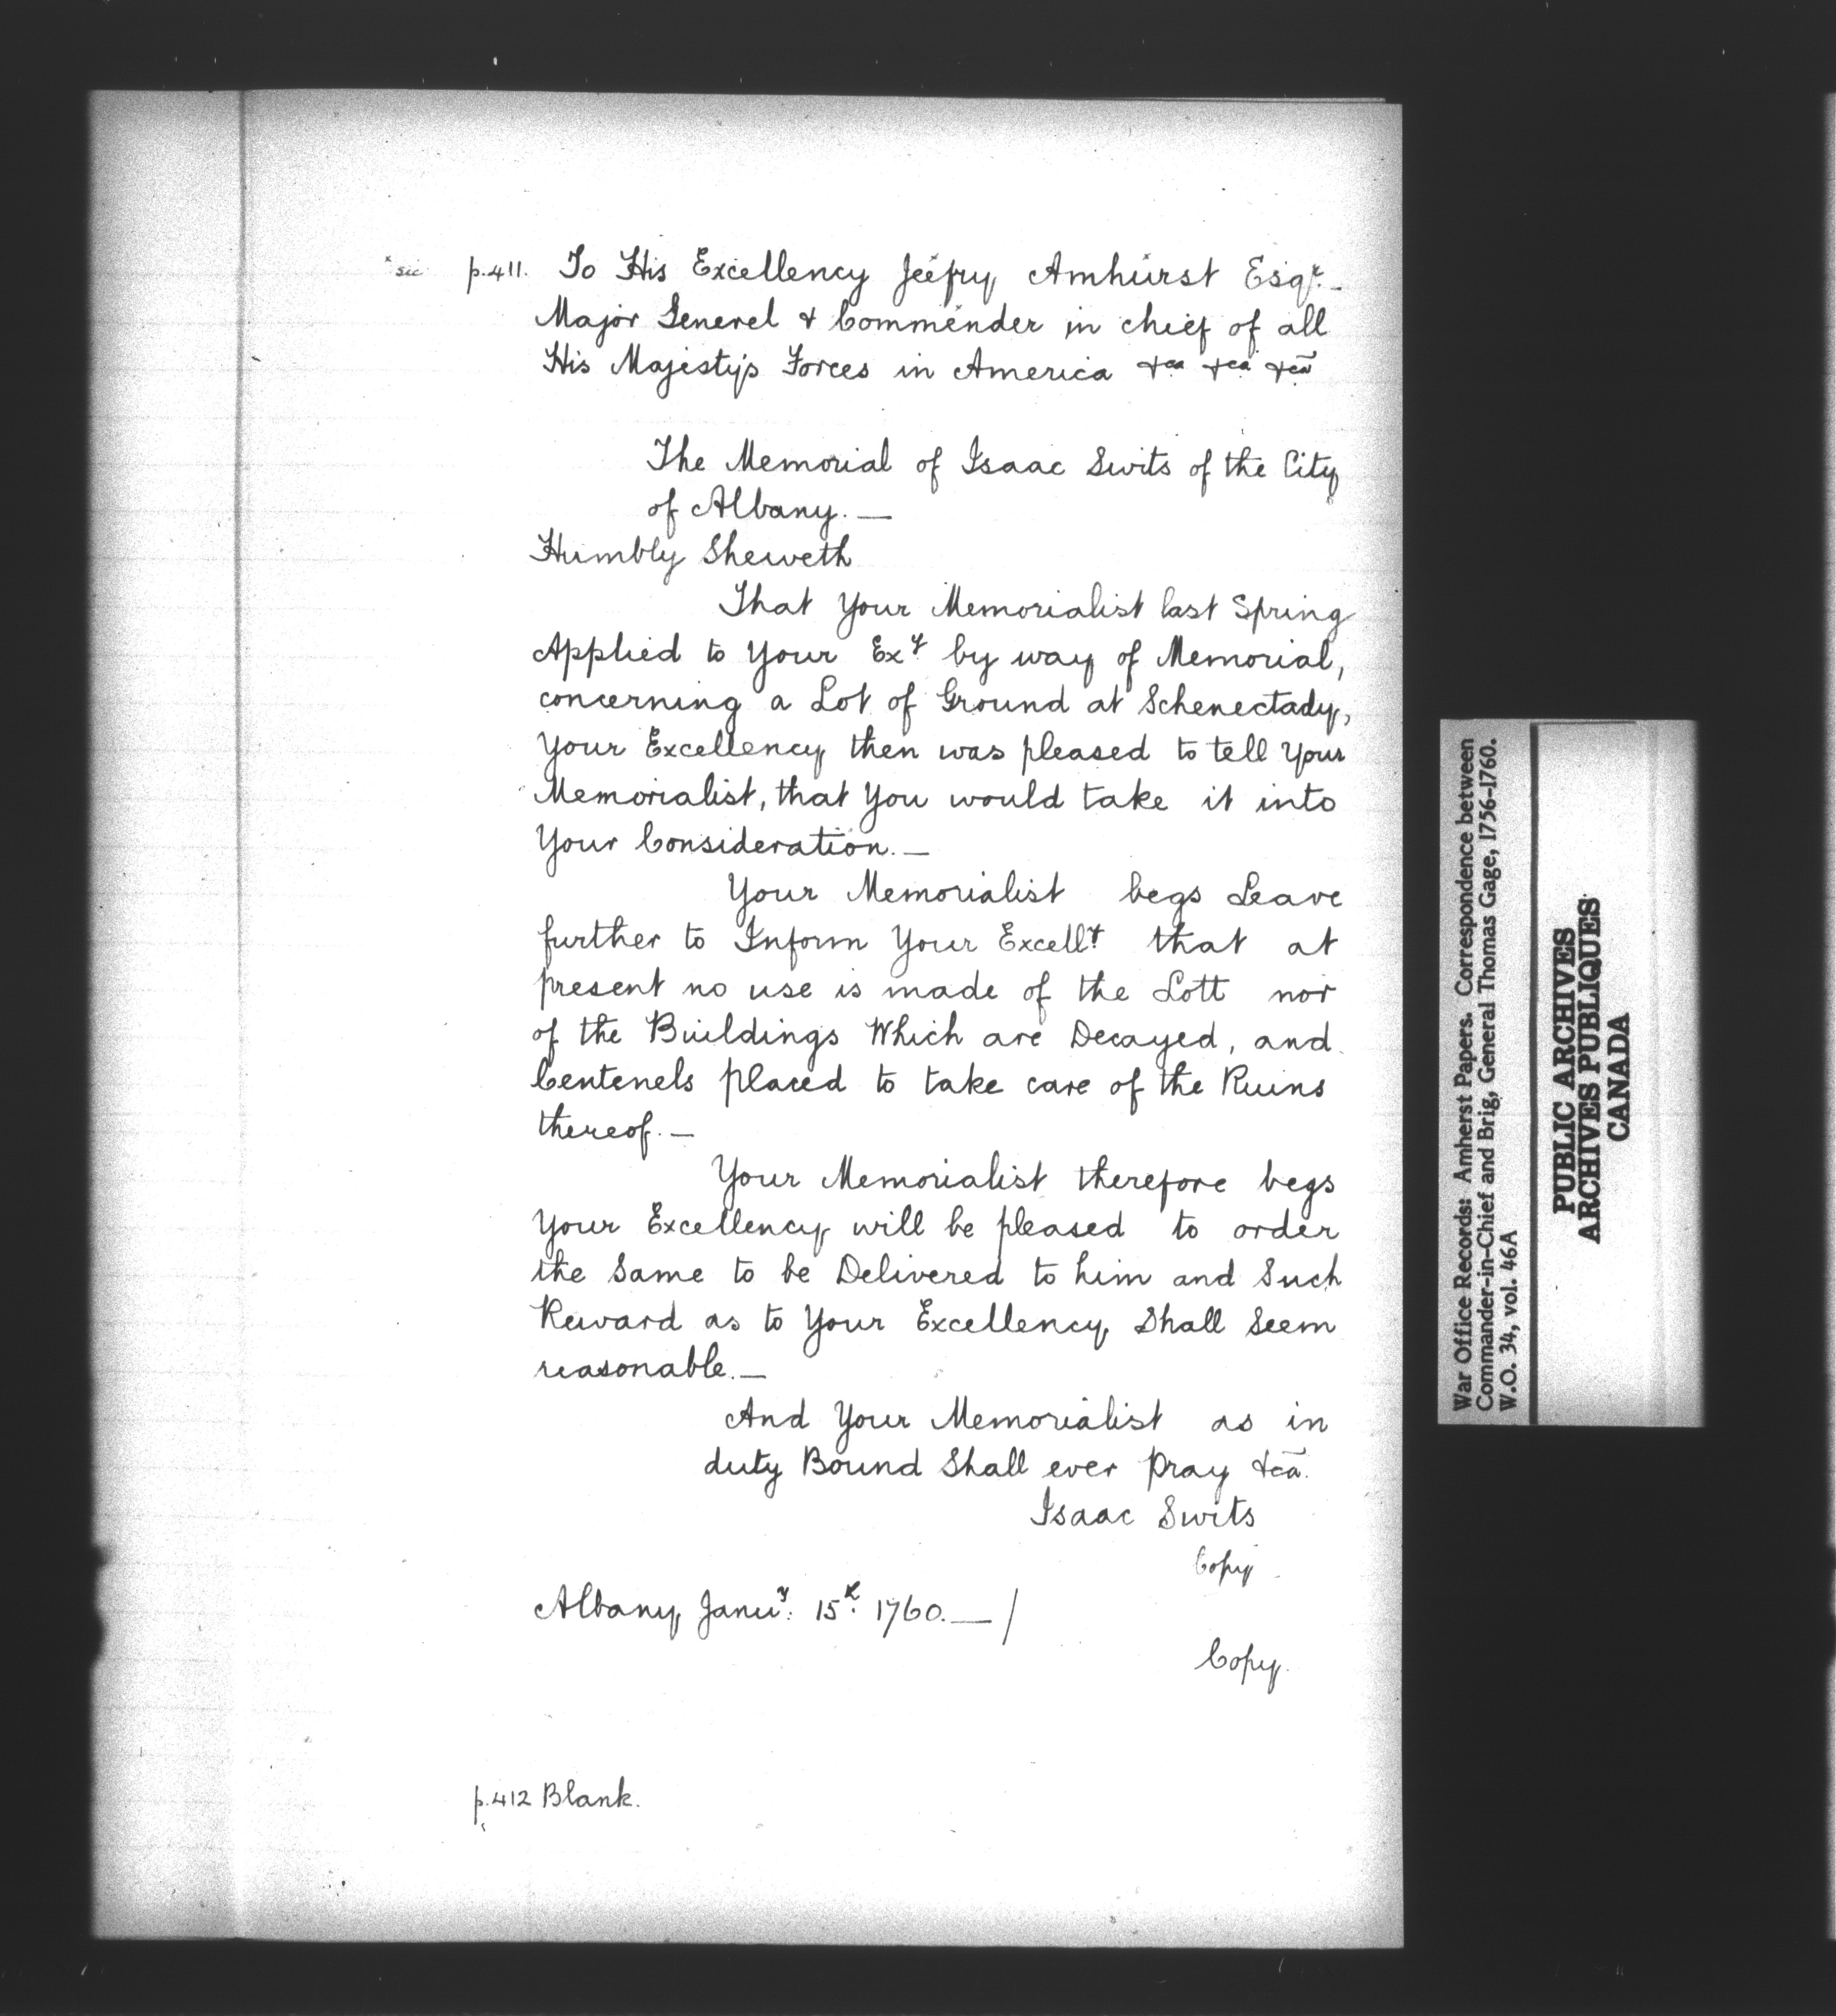 * sic p.411. To His Excellency Jeefry Amhurst Esqr.—
Major Generel & Commender in chief of all
His Majesty's Forces in America &ca &ca &ca
The Memorial of Isaac Swits of the City
of Albany.—
Humbly Sheweth
That Your Memorialist last Spring
Applied to Your Exy. by way of Memorial,
concerning a Lot of Ground at Schenectady,
Your Excellency then was pleased to tell Your
Memorialist, that You would take it into
Your Consideration.—
Your Memorialist begs Leave
further to Inform Your Excelly. that at
present no use is made of the Lott nor
of the Buildings Which are Decayed, and
Centenels placed to take care of the Ruins
thereof.—
Your Memorialist therefore begs
Your Excellency will be pleased to order
the Same to be Delivered to him and Such
Reward as to Your Excellency Shall Seem
reasonable.—
And Your Memorialist as in
duty Bound Shall ever Pray &ca.
Isaac Swits
Copy
Albany Januy. 15th. 1760.—/
Copy.
p.412 Blank.
War Office Records: Amherst Papers. Correspondence between
Commander-in-Chief and Brig, General Thomas Gage, 1756-1760.
W.O. 34, vol. 46A
PUBLIC ARCHIVES
ARCHIVES PUBLIQUES
CANADA